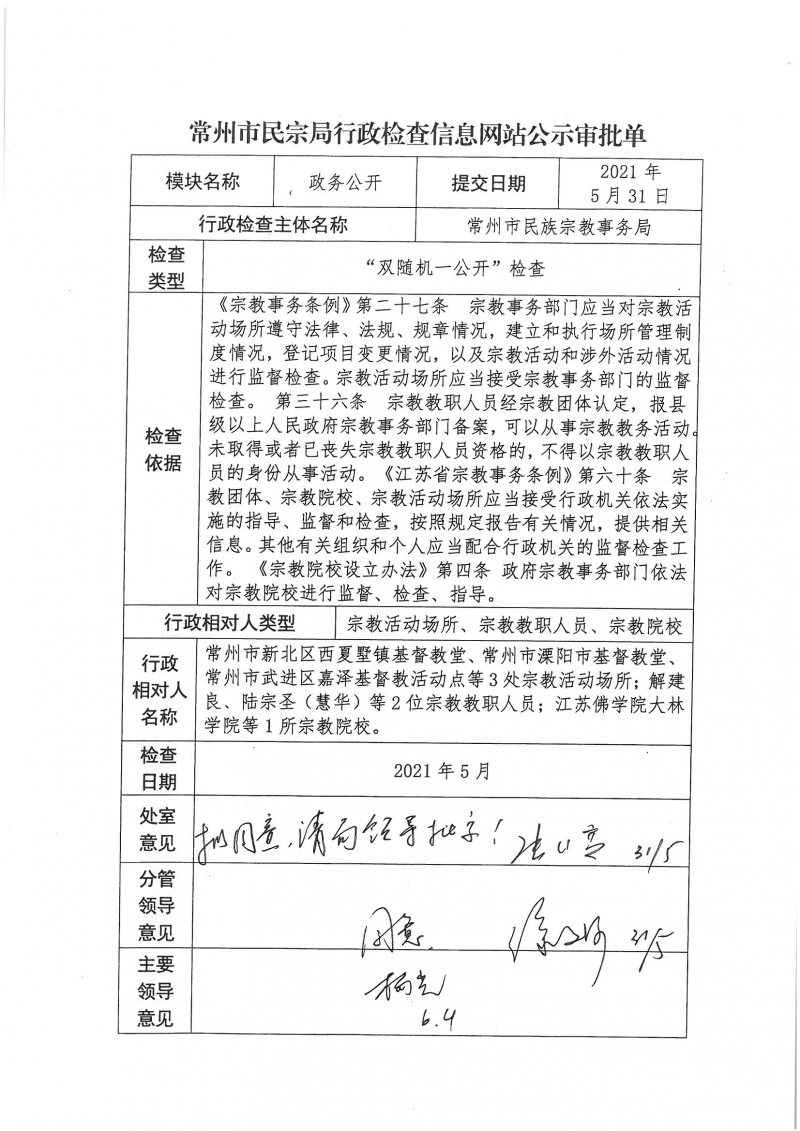 常州市民宗局行政检查信息网站公示审批单
模块名称 政务公开 提交日期 2021 年
5 月 31 日
行政检查主体名称 常州市民族宗教事务局
检查
类型
“双随机一公开”检查
检查
依据
《宗教事务条例》第二十七条 宗教事务部门应当对宗教活
动场所遵守法律、法规、规章情况，建立和执行场所管理制
度情况，登记项目变更情况，以及宗教活动和涉外活动情况
进行监督检查。宗教活动场所应当接受宗教事务部门的监督
检查。 第三十六条 宗教教职人员经宗教团体认定，报县
级以上人民政府宗教事务部门备案，可以从事宗教教务活动。
未取得或者已丧失宗教教职人员资格的，不得以宗教教职人
员的身份从事活动。《江苏省宗教事务条例》第六十条 宗
教团体、宗教院校、宗教活动场所应当接受行政机关依法实
施的指导、监督和检查，按照规定报告有关情况，提供相关
信息。其他有关组织和个人应当配合行政机关的监督检查工
作。 《宗教院校设立办法》第四条 政府宗教事务部门依法
对宗教院校进行监督、检查、指导。
行政相对人类型 宗教活动场所、宗教教职人员、宗教院校
行政
相对人
名称
常州市新北区西夏墅镇基督教堂、常州市溧阳市基督教堂、
常州市武进区嘉泽基督教活动点等 3 处宗教活动场所；解建
良、陆宗圣（慧华）等 2 位宗教教职人员；江苏佛学院大林
学院等 1 所宗教院校。
检查
日期
2021 年 5 月
处室
意见
拟同意，请局领导批字！ 31/5
分管
领导
意见
同意. 31/5
主要
领导
意见
6.4